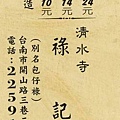 造 10元 14元 24元
清水寺
祿記
(別名包仔祿)
台南市開山路三巷
電話：2259